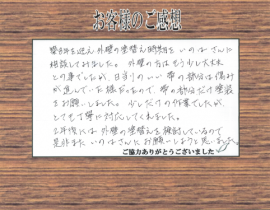 お客様のご感想
築8年を迎え外壁の塗替え時期をいのはさんに
相談しておりました。外壁の方はもう少し大丈夫
との事でしたが、日当りのいい帯の部分は傷み
が進んでいた様だあので帯の部分だけ塗装
をお願いしました。少しだけの作業でしたが、
とても丁寧に対応してくれました。
2年後には外壁の塗替えを検討しているので
是非またいのはさんにお願いしようと思いました
ご協力ありがとうございました